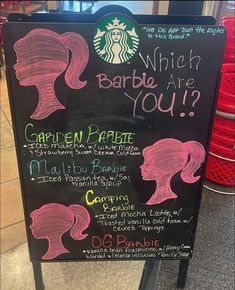 "We do not own the rights
to this Brand"
Which
Barbie Are
YOU!?
GARDEN BARBIE
Iced matcha w/ white mocha
+ Strawberry Sweet Cream Cold foam
Malibu Barbie
Iced Passion tea w/ Soy
Vanilla Syrup
Camping
Barbie
Iced Mocha Latte w/
Toasted vanilla cold foam w/
crunch toppings.
OG Barbie
vanilla bean frappuccino w/